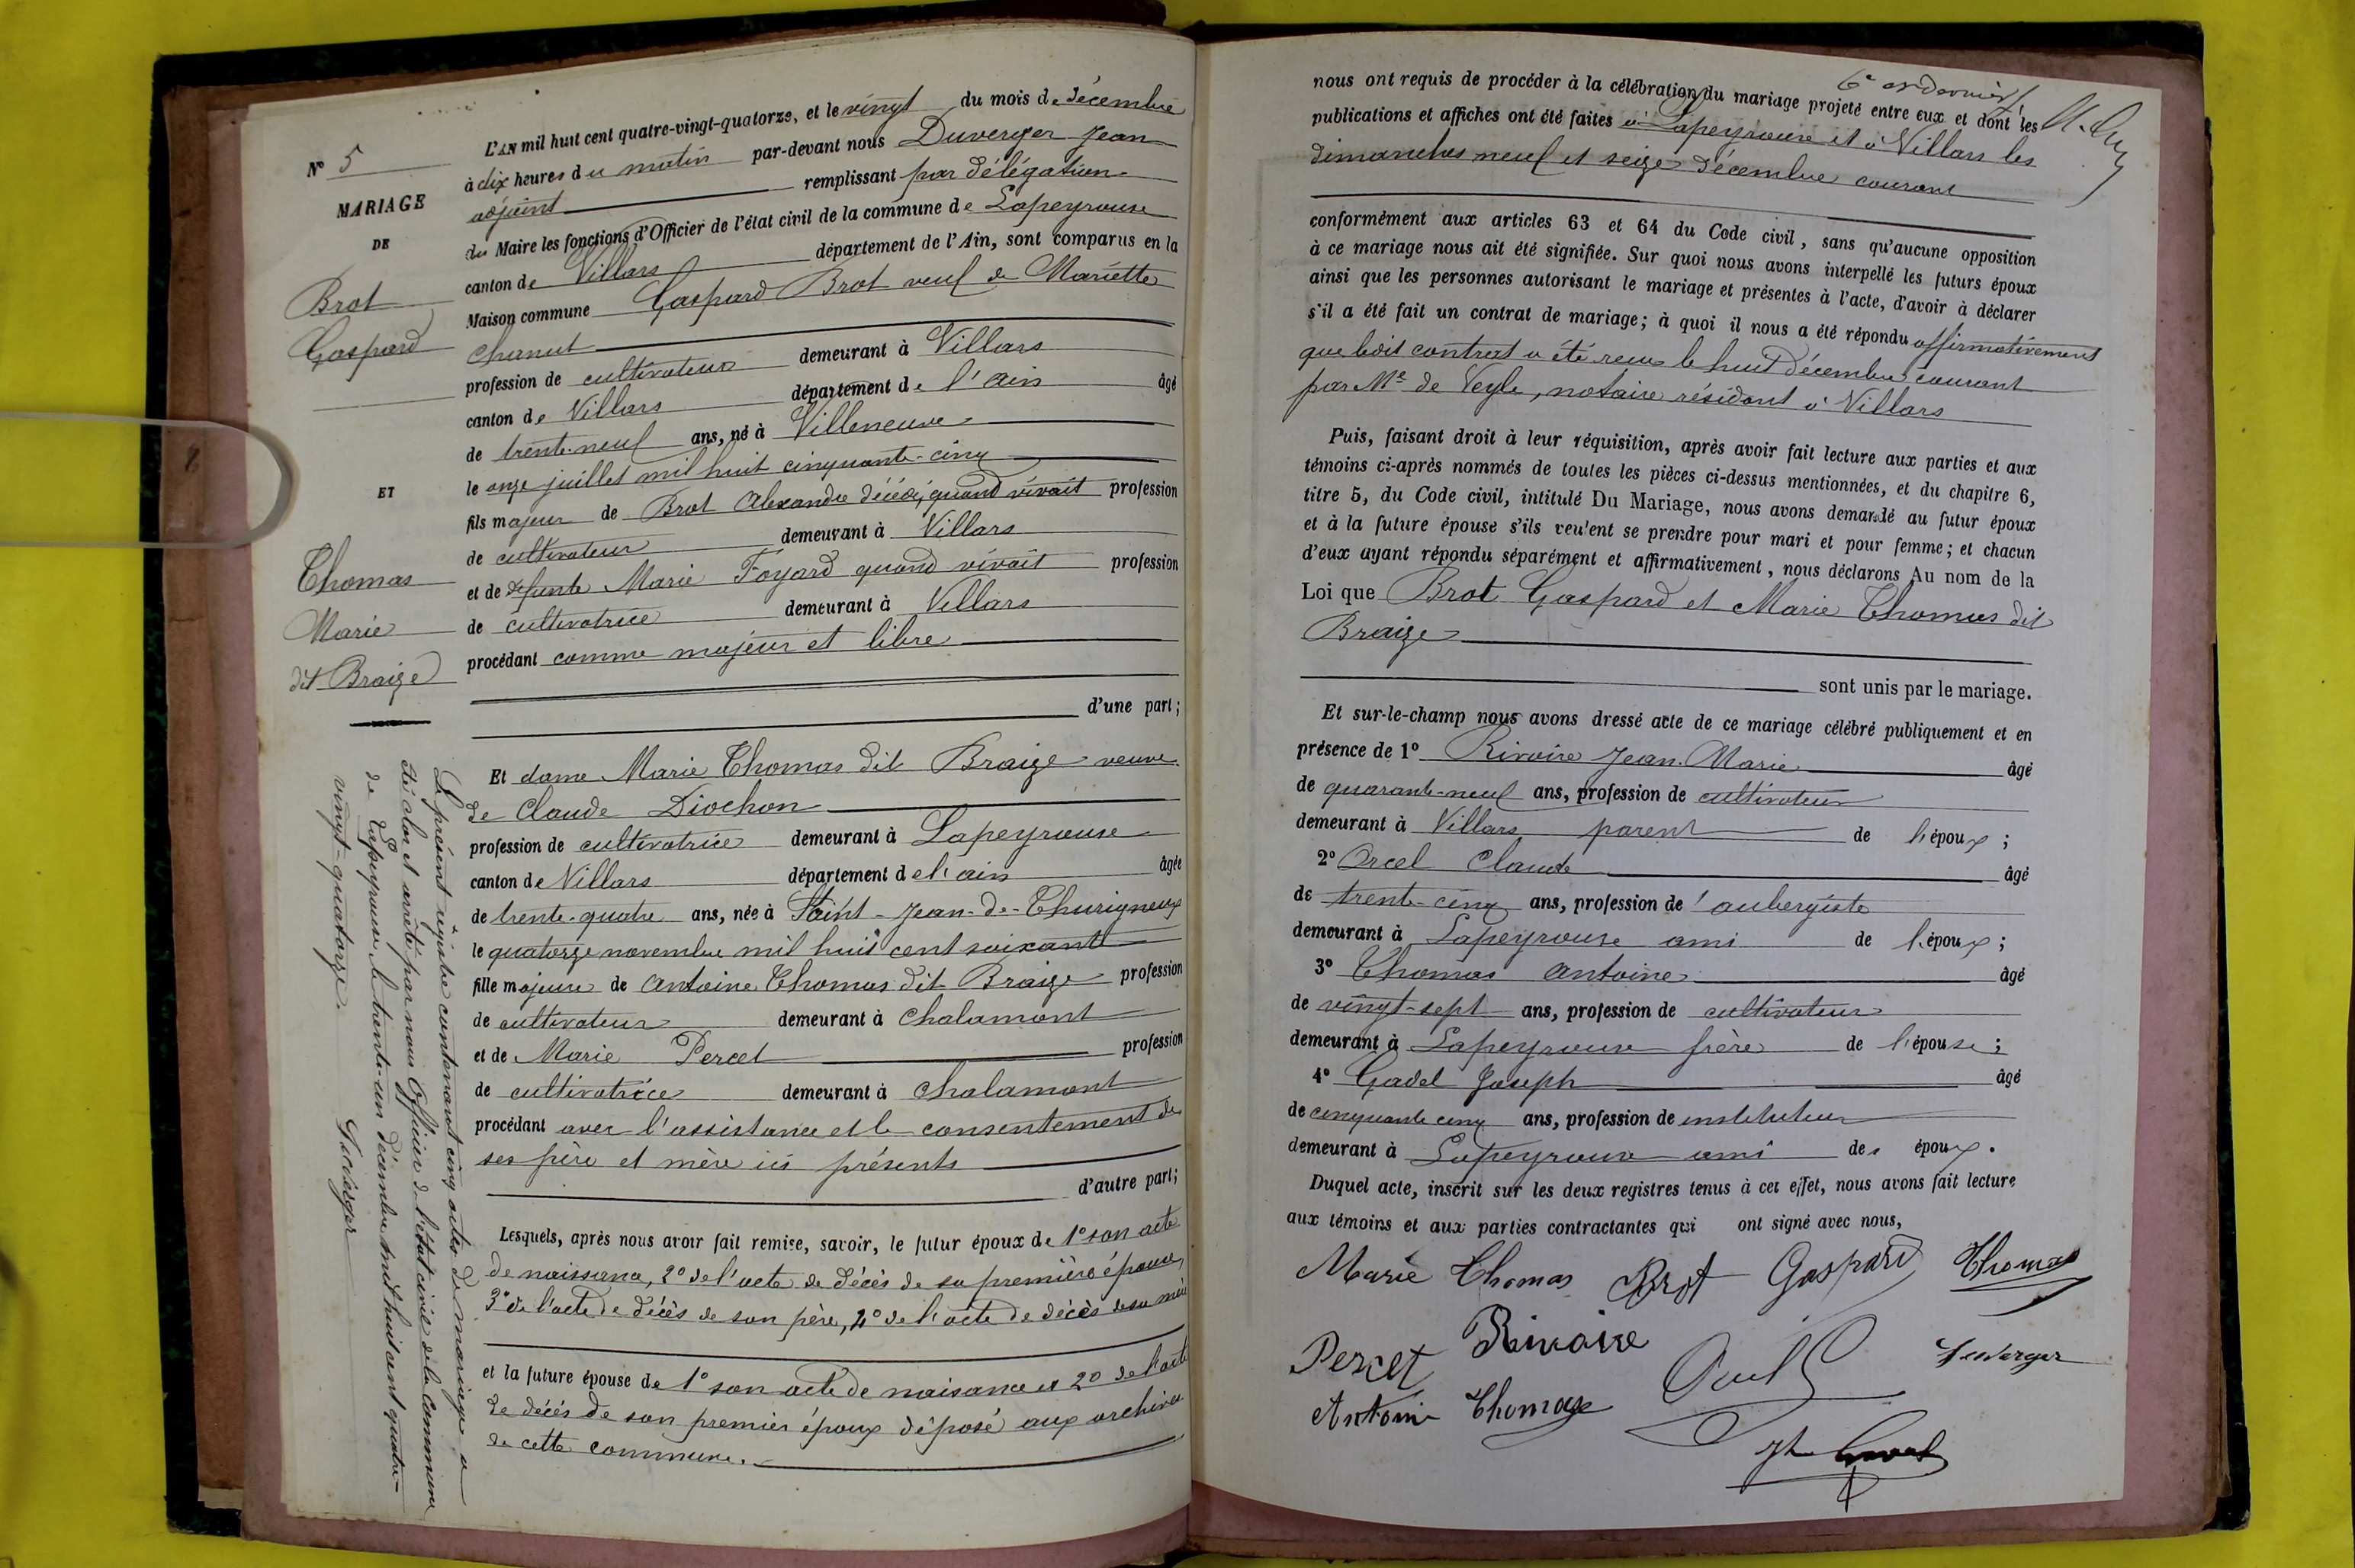 N° 5
MARIAGE
DE
Brot
Gaspard
ET
Thomas
Marie
dit Braize
L'AN mil huit cent quatre-vingt-quatorze, et le vingt du mois de décembre
à dix heures du matin par-devant nous Duverger Jean
adjoint remplissant par délégation
du Maire les fonctions d'Officier de l'état civil de la commune de Lapeyrouse
canton de Villars département de l'Ain, sont comparus en la
Maison commune Gaspard Brot veuf de Mariette
Chanut
profession de cultivateur demeurant à Villars
canton de Villars département de l'ain âgé
de trente-neuf ans, né à Villeneuve
le onze juillet mil huit cinquante-cinq
fils majeur de Brot Alexandre décédé, quand vivait profession
de cultivateur demeurant à Villars
et de defunte Marie Foyard quand vivait profession
de cultivatrice demeurant à Villars
procédant comme majeur et libre
d'une part;
Et dame Marie Thomas dit Braize veuve
de Claude Diochon
profession de cultivatrice demeurant à Lapeyrouse
canton de Villars département de l'ain âgée
de trente-quatre ans, née à Saint-Jean-de-Thurigneux
le quatorze novembre mil huit cent soixante
fille majeure de Antoine Thomas dit Braize profession
de cultivateur demeurant à Chalamont
et de Marie Percet profession
de cultivatrice demeurant à Chalamont
procédant avec l'assistance et le consentement de
ses père et mère ici présents
d'autre part;
Lesquels, après nous avoir fait remise, savoir, le futur époux de 1° son acte
de naissance, 2° de l'acte de décès de sa première épouse,
3° de l'acte de décès de son père, 4° de l'acte de décès de sa mère
et la future épouse de 1° son acte de naisance et 2° de l'acte
de décès de son premier époux déposé aux archives
de cette commune.
Le présent registre contenant cinq actes de mariage a
été clos et arrêté par nous Officier de l'état civil de la Commune
de Lapeyrouse le trente-un décembre mil huit cent quatre-
vingt-quatorze.
Duverger
6e et dernier
nous ont requis de procéder à la célébration du mariage projeté entre eux et dont les
publications et affiches ont été faites à Lapeyrouse et à Villars les
dimanches neuf et seize décembre courant
conformément aux articles 63 et 64 du Code civil, sans qu'aucune opposition
à ce mariage nous ait été signifiée. Sur quoi nous avons interpellé les futurs époux
ainsi que les personnes autorisant le mariage et présentes à l'acte, d'avoir à déclarer
s'il a été fait un contrat de mariage; à quoi il nous a été répondu affirmativement
que ledit contrat a été reçu le huit décembre courant
par Me de Veyle, notaire résidant à Villars
Puis, faisant droit à leur réquisition, après avoir fait lecture aux parties et aux
témoins ci-après nommés de toutes les pièces ci-dessus mentionnées, et du chapitre 6,
titre 5, du Code civil, intitulé Du Mariage, nous avons demandé au futur époux
et à la future épouse s'ils veulent se prendre pour mari et pour femme; et chacun
d'eux ayant répondu séparément et affirmativement, nous déclarons Au nom de la
Loi que Brot Gaspard et Marie Thomas dit
Braize
sont unis par le mariage.
Et sur-le-champ nous avons dressé acte de ce mariage célébré publiquement et en
présence de 1° Rivoire Jean-Marie âgé
de quarante-neuf ans, profession de cultivateur
demeurant à Villars parent de l'époux;
2° Orcel Claude âgé
de trente-cinq ans, profession de aubergiste
demeurant à Lapeyrouse ami de l'époux;
3° Thomas Antoine âgé
de vingt-sept ans, profession de cultivateur
demeurant à Lapeyrouse frère de l'épouse;
4° Gadel Joseph âgé
de cinquante cinq ans, profession de instituteur
demeurant à Lapeyrouse ami des époux.
Duquel acte, inscrit sur les deux registres tenus à cet effet, nous avons fait lecture
aux témoins et aux parties contractantes qui ont signé avec nous,
Marie Thomas Brot Gaspard Thomas
Percet Rivoire Duverger
Antoine Thomas